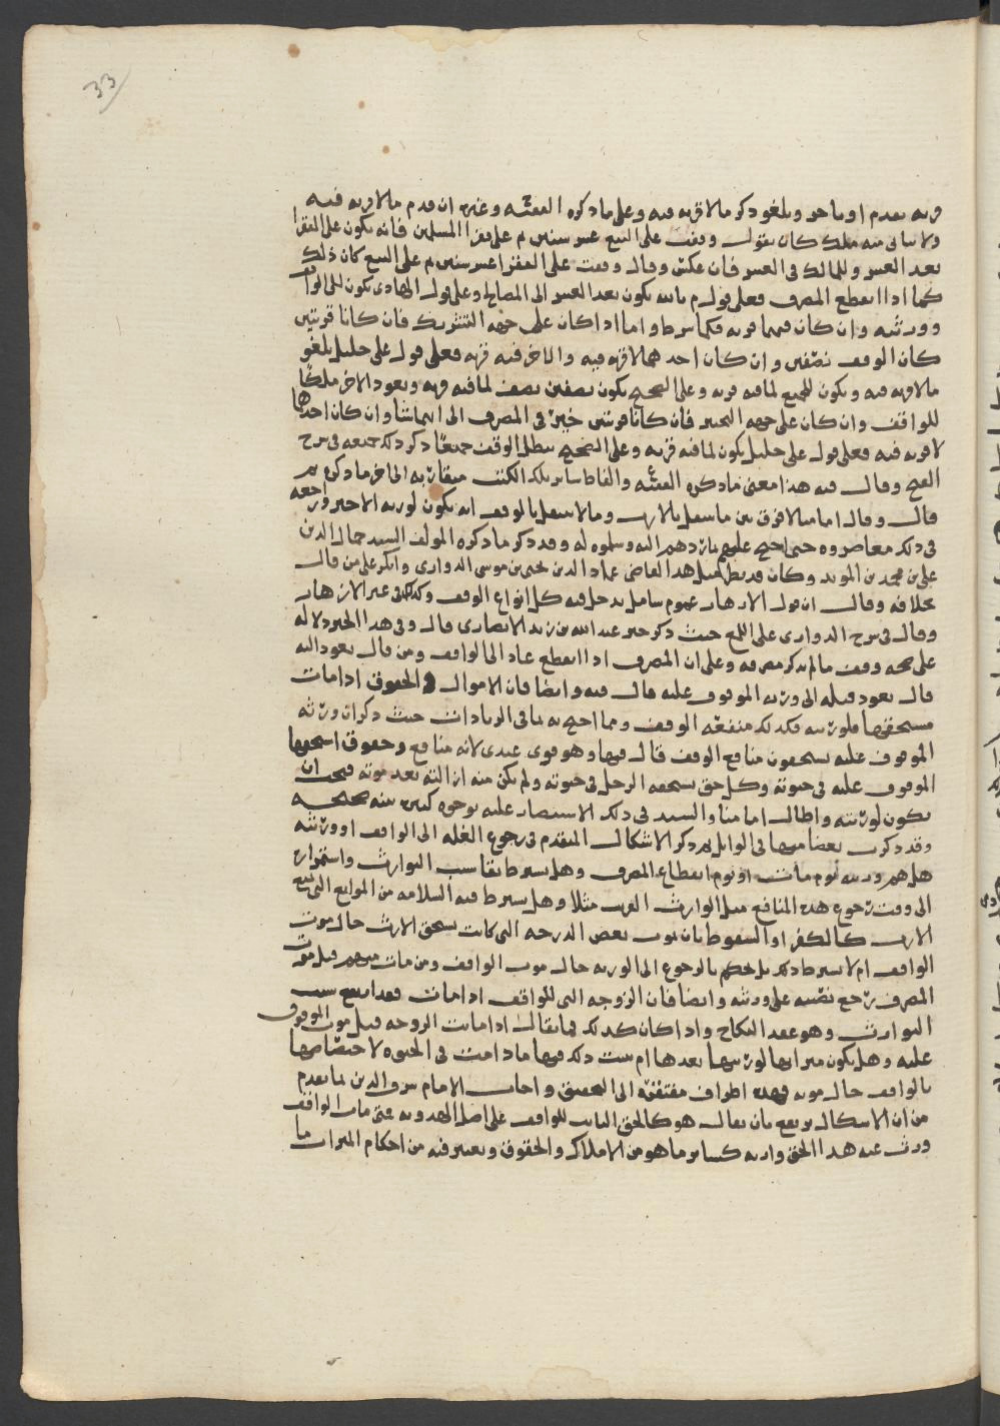 33
قربه تقدم او تاخر ويلغو ذكر مالا قربه فيه وعلى ما ذكره الفقيه وغيره ان قدم مالا قربه فيه
ولا ينافي منه ملك كان يقول وقفت على البيع عشر سنين ثم على فقرا المسلمين فانه يكون على الفقرا
بعد العشر وللمالك في العشر فان عكس وقال وقفت على الفقرا عشر سنين ثم على البيع كان ذلك
كما اذا انقطع المصرف فعلى قول م بالله يكون بعد العشر الى المصالح وعلى قول الهادي يكون للواقف
وورثته وان كان فيهما قربه فكما شرط واما اذا كان على جهه التشريك فان كانا قربتين
كان الوقف نصفين وان كان احدهما لا قربه فيه والاخر فيه قربه فعلى قول علي خليل يلغو
مالا قربه فيه ويكون للجميع لما فيه قربه وعلى الصحيح يكون نصفين نصف لما فيه قربه ويعود الاخر ملكا
للواقف وان كان على جهه التخيير فان كانا قربتين خير في المصرف الى ايهما شا وان كان احدهما
لا قربه فيه فعلى قول علي خليل يكون لما فيه قربه وعلى الصحيح يبطل الوقف جميعا ذكر ذلك جميعه في شرح
الفتح وقال فيه هذا معنى ما ذكره الفقيه والفاظ ساير تلك الكتب متقاربه الى اخر ما ذكره ثم
قال وقال امامنا لا فرق بين ما ينتقل بالارث وما لا ينتقل بالوقف انه يكون لورثه الاخير وراجعه
في ذلك معاصروه حتى احتج عليهم بما ردهم اليه وسلموه له وقد ذكر ما ذكره المولف السيد جمال الدين
علي بن محمد بن المويد وكان قد نظر لمثل هذا القاضي عماد الدين يحيى بن موسى الدواري وانكر على من قال
بخلافه وقال ان قول الازهار عموم شامل يدخل فيه كل انواع الوقف وكذلك غير الازهار
وقال في شرح الدواري على اللمع حيث ذكر خبر عبد الله بن زيد الانصاري قال وفي هذا الخبر دلاله
على صحه وقف مالم يذكر مصرفه وعلى ان المصرف اذا انقطع عاد الى الواقف ومن قال يعود اليه
قال يعود قبله الى ورثه الموقوف عليه قال فيه وايضا فان الاموال والحقوق اذا مات
مستحقها فلورثته فكذلك منفعه الوقف ومما احتج به لما في الزيادات حيث ذكر ان ورثه
الموقوف عليه يستحقون منافع الوقف قال فيها وهو قوي عندي لانه منافع وحقوق استحقها
الموقوف عليه في حيوته وكل حق يستحقه الرجل في حيوته ولم يكن منه ازالته بعد موته فيجب ان
يكون لورثته واطال امامنا والسيد في ذلك الاستنصار عليه بوجوه كثيره بينه صحيحه
وقد ذكرت بعضا منها في الوابل ثم ذكر الاشكال المتقدم في رجوع الغله الى الواقف او ورثته
هل هم ورثته يوم مات او يوم انقطاع المصرف وهل يشترط بقا سبب التوارث واستمراره
الى وقت رجوع هذه المنافع مثل الوارث القريب مثلا وهل يشترط فيه السلامه من الموانع التي تمنع
الارث كالكفر او السقوط بان يموت بعض الدرجه التي كانت تستحق الارث حال موت
الواقف ام لا يشترط ذلك بل يحكم بالرجوع الى الورثه حال موت الواقف ومن مات منهم قبل موت
المصرف رجع نصيبه على ورثته وايضا فان الزوجه التي للواقف اذا ماتت فقد ارتفع سبب
التوارث وهو عقد النكاح واذا كان كذلك فما يقال اذا ماتت الزوجه قبل موت الموقوف
عليه وهل يكون ميراثها لورثتها بعدها ام يثبت ذلك فيها مادامت في الحيوه لاختصاصها
بالواقف حال موته فهذه اطراف مفتقره الى التحقيق واجاب الامام شرف الدين لما تقدم
من ان الاشكال يرتفع بان يقال هو كالحق الثابت للواقف على اصل الهدويه فمتى مات الواقف
ورث عنه هذا الحق وارثه كساير ما هو من الاملاك والحقوق ويعتبر فيه من احكام الميراث ما